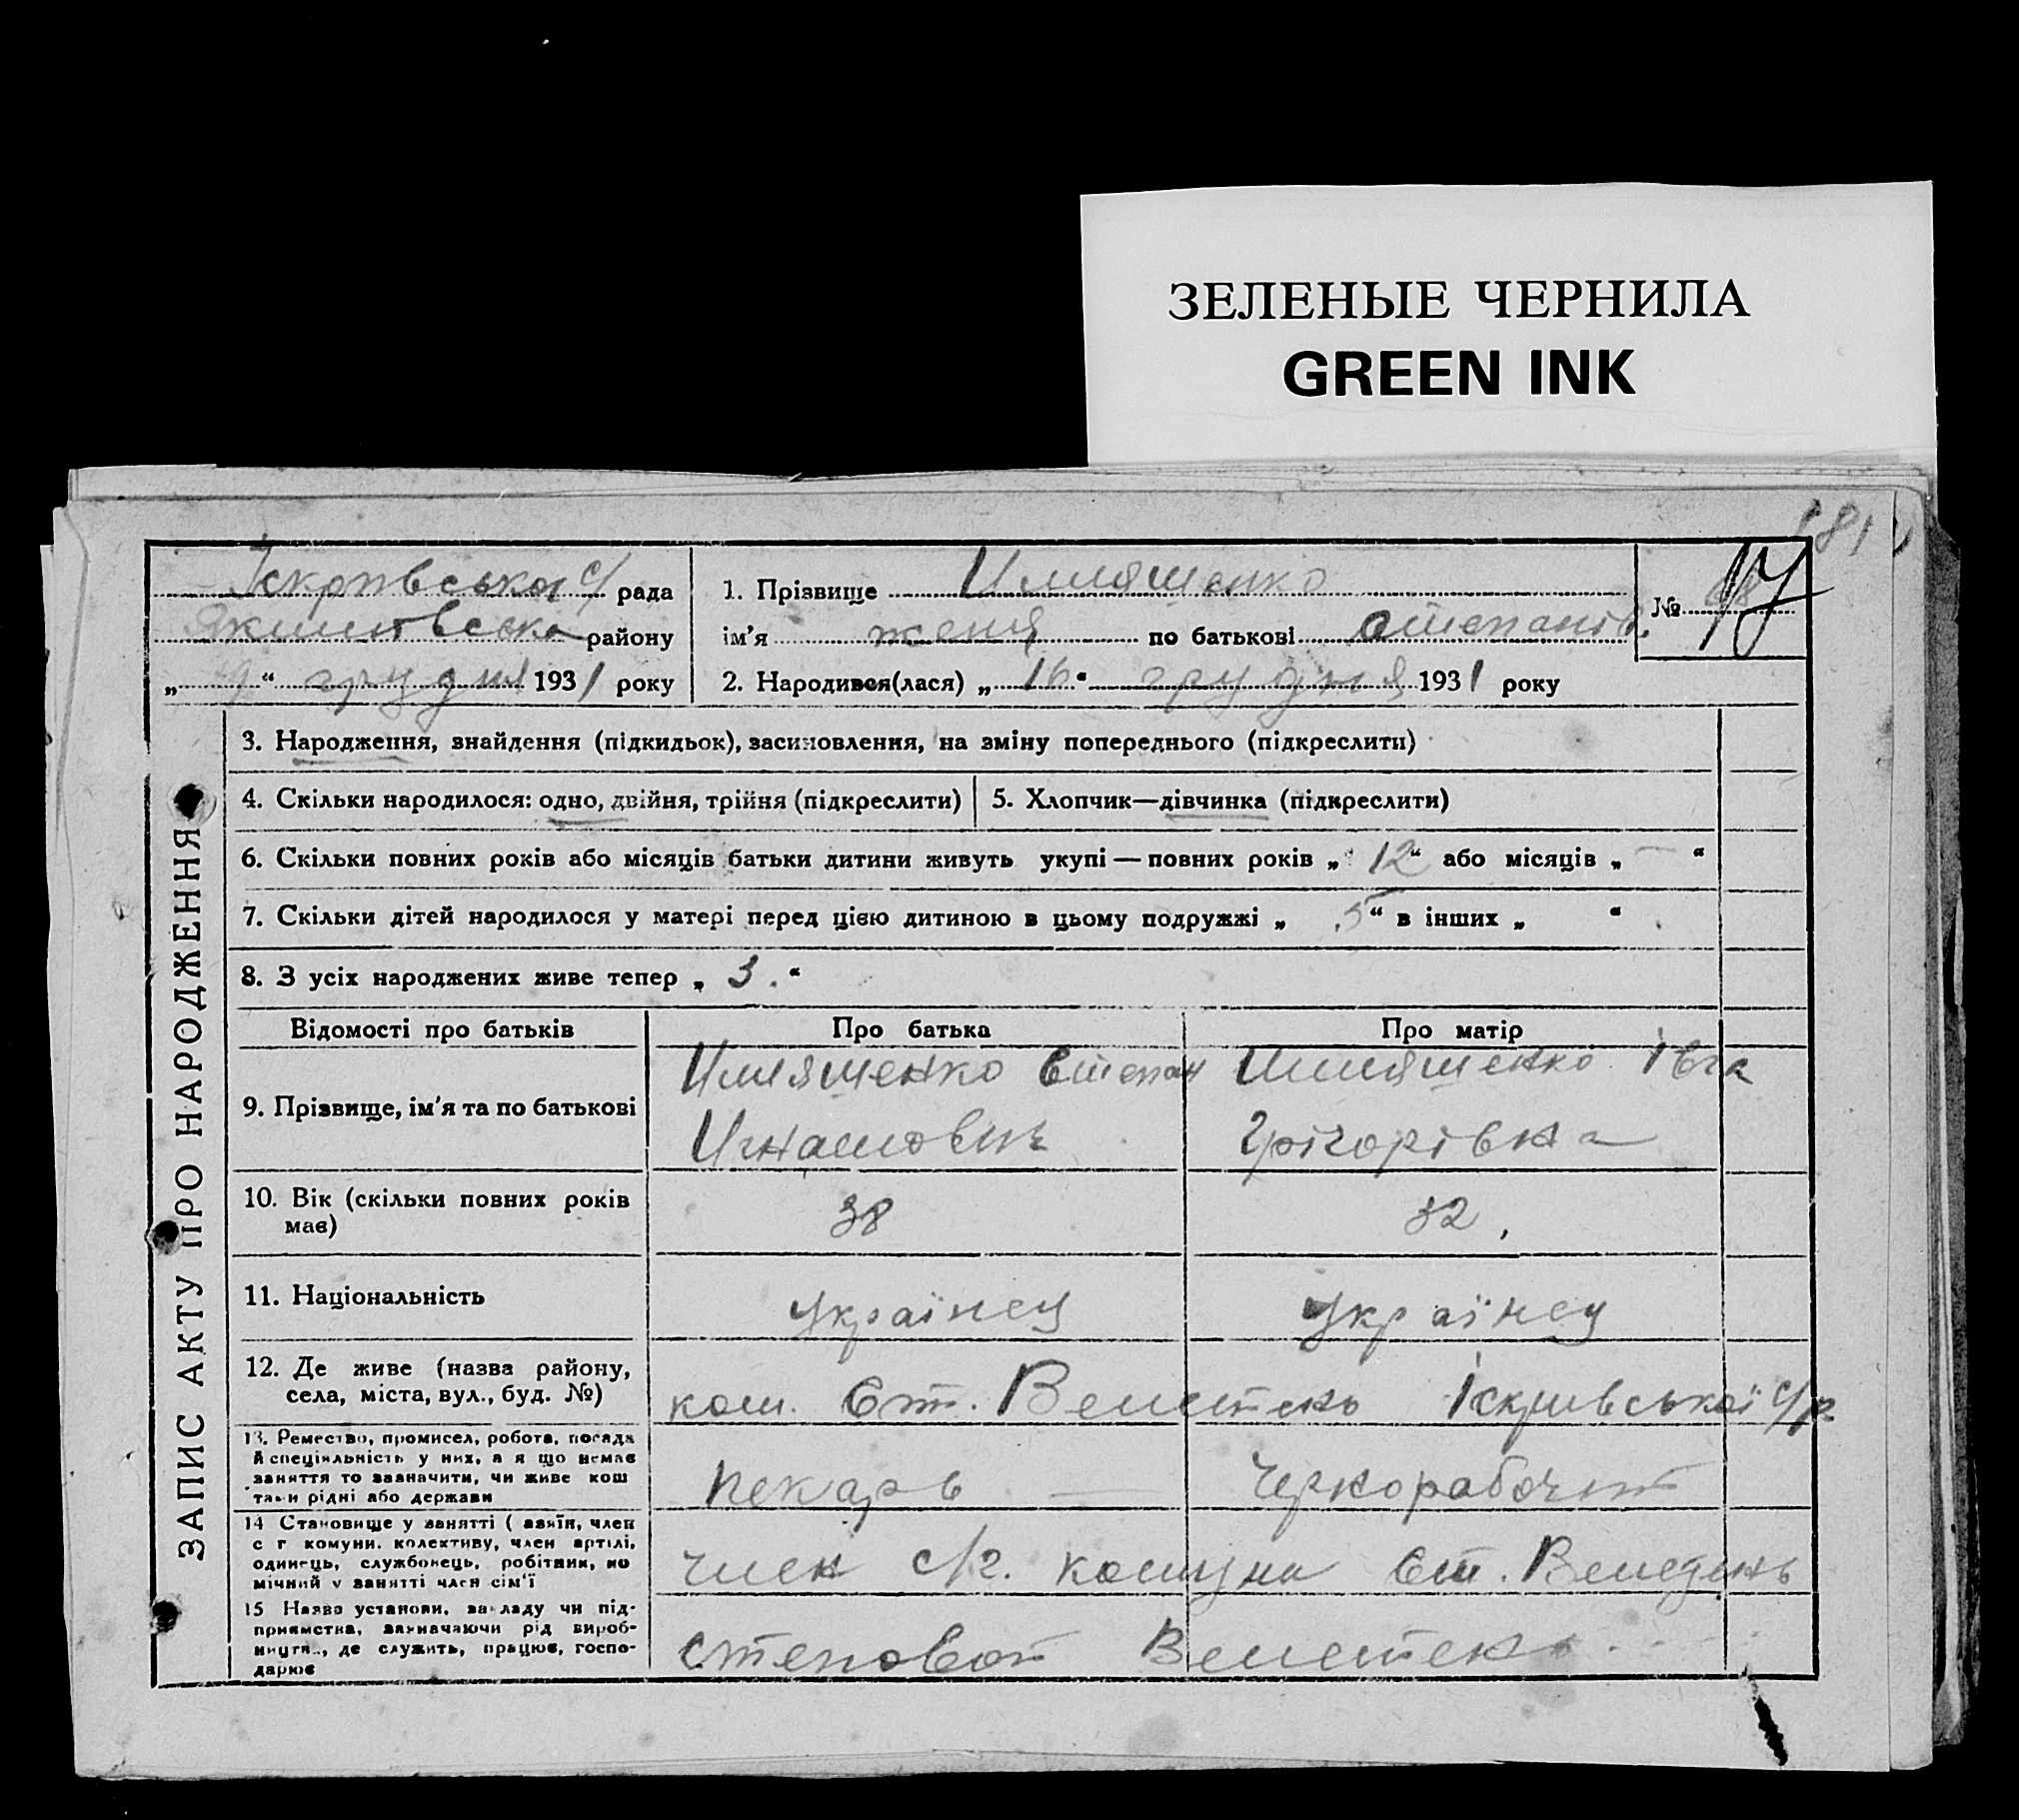 ЗЕЛЕНЫЕ ЧЕРНИЛА
GREEN INK
181
Іскрівська с/ рада
району
„ 9 “ грудня 1931 року
1. Прізвище Илляшенко
ім'я женя по батькові степанів.
№ 17
2. Народився(лася) „ 16 “ грудня 1931 року
ЗАПИС АКТУ ПРО НАРОДЖЕННЯ
3. Народження, знайдення (підкидьок), засиновлення, на зміну попереднього (підкреслити)
4. Скільки народилося: одно, двійня, трійня (підкреслити) 5. Хлопчик—дівчинка (підкреслити)
6. Скільки повних років або місяців батьки дитини живуть укупі — повних років „ 12 “ або місяців „ — “
7. Скільки дітей народилося у матері перед цією дитиною в цьому подружжі „ 5 “ в інших „ “
8. З усіх народжених живе тепер „ 3. “
Відомості про батьків Про батька Про матір
9. Прізвище, ім'я та по батькові
Илляшенко Степан
Игнатович
Илляшенко Івга
Григорівна
10. Вік (скільки повних років
має)
38 32
11. Національність українец українец
12. Де живе (назва району,
села, міста, вул., буд. №)
ком. Ст. Велетень Іскрівської с/р
13. Ремество, промисел, робота, посада
й спеціяльність у них, а я що немає
заняття то зазначити, чи живе кош
тами рідні або держави
пекарь — Чернорабочит
14 Становище у занятті ( азяїн, член
с г комуни, колективу, член артілі,
одинець, службовець, робітник, по
мічний у занятті член сім'ї
член с/г. комуна Ст. Веледень
15 Назва установи, закладу чи під-
приємства, зазначаючи рід вироб-
ництв., де служить, працює, госпо-
дарює
степовой Велетень